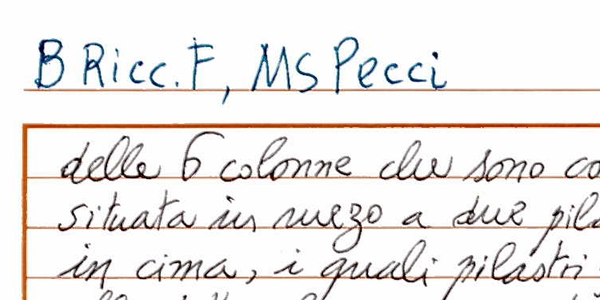 B Ricc. F, MS Pecci
delle 6 colonne che sono
situata in mezzo a due
in cima, i quali pilastri